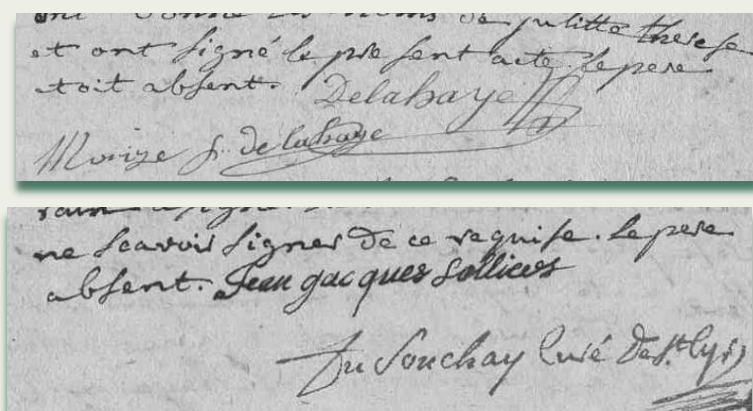 ont donné les noms de julitte therese
et ont signé le pre sent acte. le pere
etoit absent. Delahaye
Morize f. delahaye
ne scavoir signer de ce requise. le pere
absent. Jean gacques Sollicos
Du Souchay Curé de st. Cyr